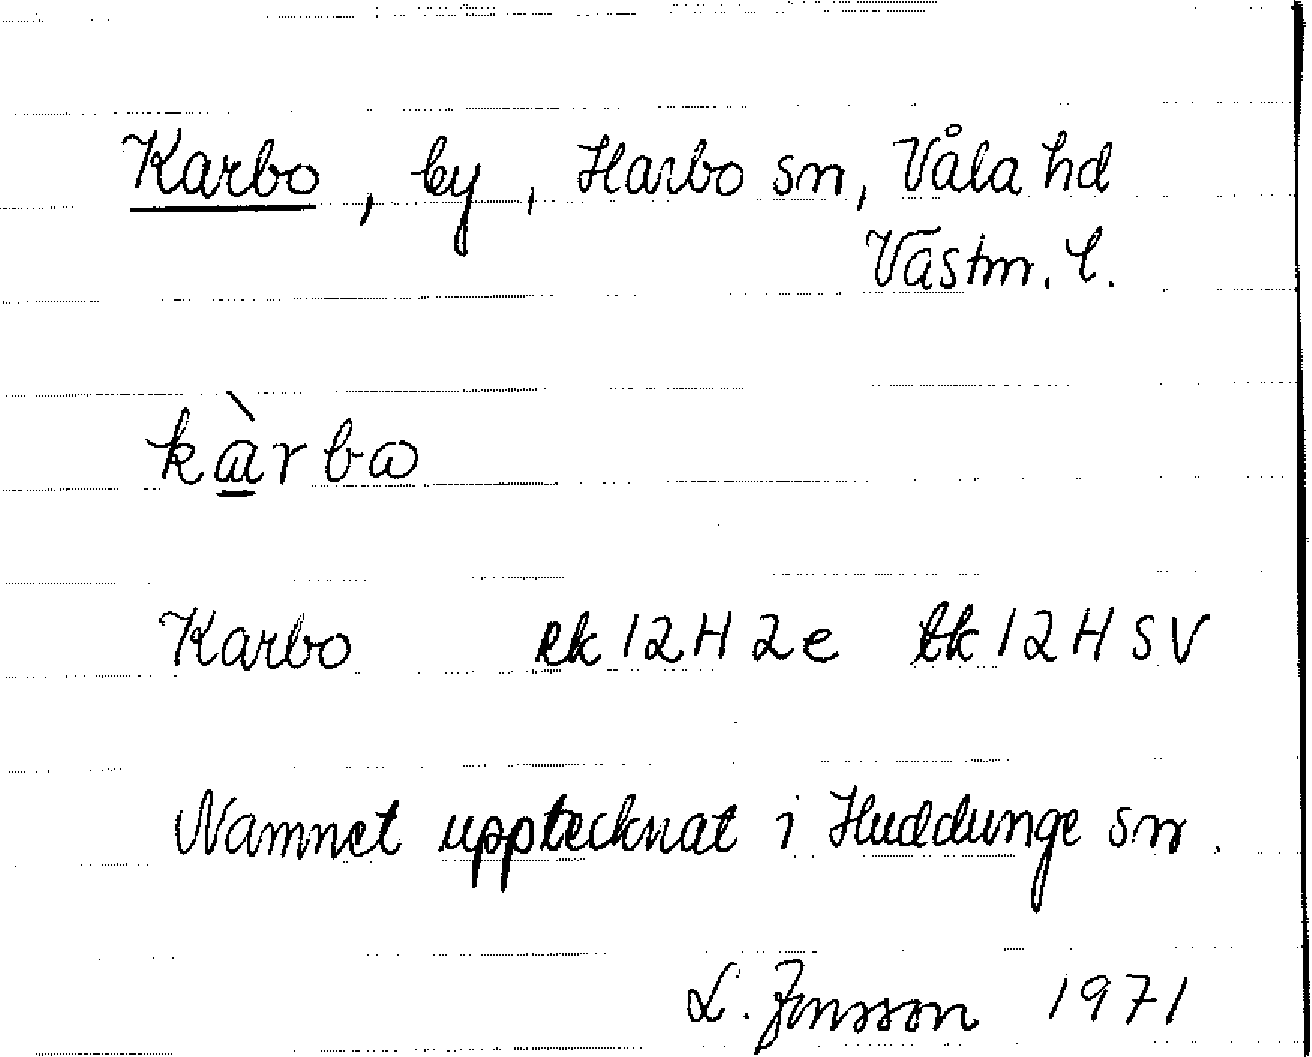 Karbo, by, Harbo sn, Våla hd
Västm. l.
kàrbω
Karbo ek 12H 2e tk 12H SV
Namnet upptecknat i Huddunge sn.
L. Jonsson 1971